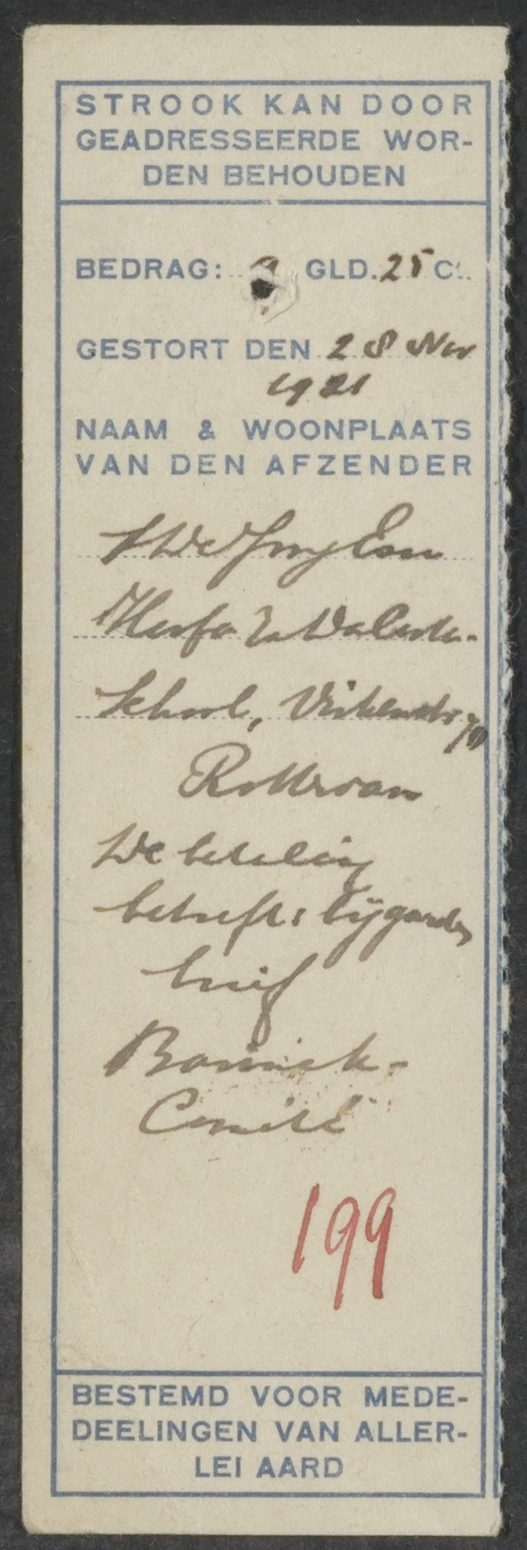 STROOK KAN DOOR
GEADRESSEERDE WOR-
DEN BEHOUDEN
BEDRAG: 9 GLD. 25 Ct.
GESTORT DEN 28 Nov
1921
NAAM & WOONPLAATS
VAN DEN AFZENDER
School,
Rotterdam
De betaling
betreft: bijgaande
brief
Comité
199
BESTEMD VOOR MEDE-
DEELINGEN VAN ALLER-
LEI AARD